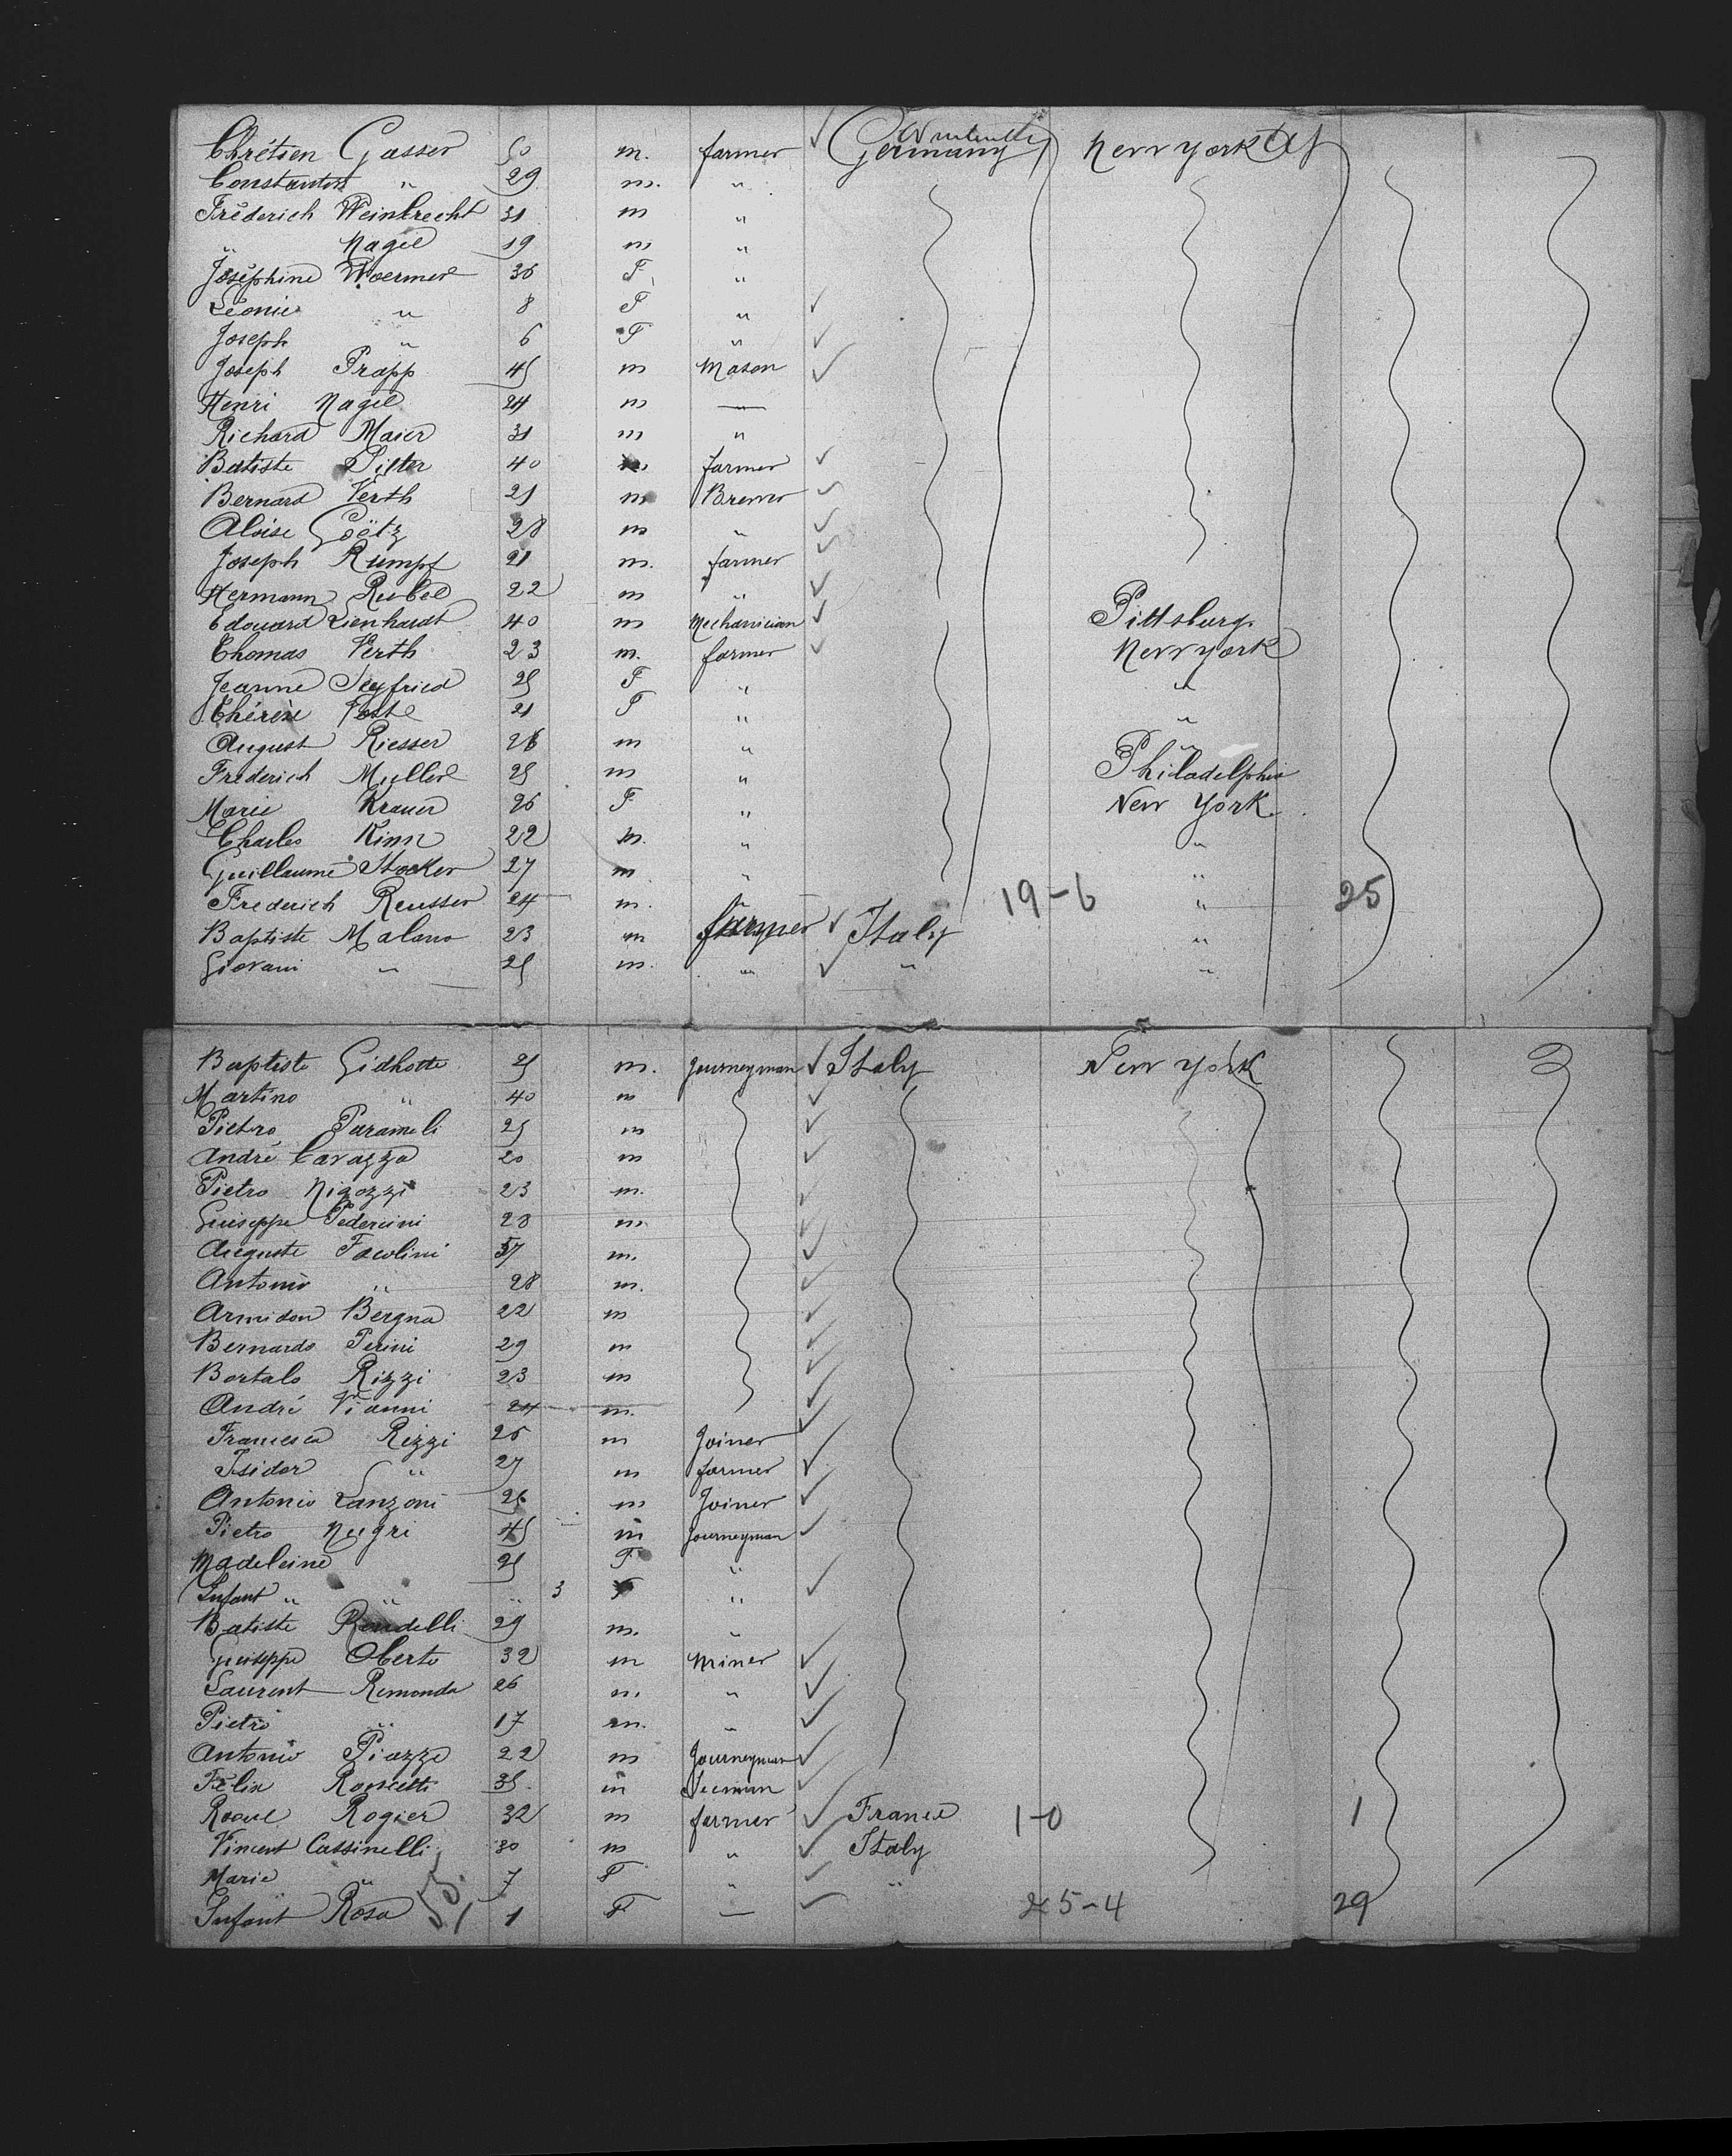 Chrétien Gasser 50 m. farmer Germany New york
Constantin " 29 m. "
Fréderich Weinbrecht 31 m "
" Nagel 19 m "
Joséphine Woerner 36 F "
Léonie " 8 F "
Joseph " 6 F "
Joseph Trapp 45 m Mason
Henri Nagel 24 m —
Richard Maier 31 m "
Batiste Silter 40 m farmer
Bernard Verth 21 m Brewer
Aloise Goëtz 28 m "
Joseph Rumpf 21 m. farmer
Hermann Rubel 22 m "
Edouard Lienhardt 40 m Mechanician Pittsburg.
Thomas Verth 23 m. farmer New york
Jeanne Seyfried 25 F " "
Thérèse 21 F " "
August Riesser 26 m " "
Fréderich Muller 25 m " Philadelphia
Marie Krauer 26 F " New York.
Charles Kinn 22 m. " "
Guillaume Stocker 27 m " "
Frederich Reusser 24 m. " 19-6 " 25
Baptiste Malano 23 m farmer Italy "
Giovani " 25 m. " " "
Baptiste Gidhotte 25 m. journeyman Italy New york
Martino " 40 m
Pietro Parameli 25 m
André Cavazza 20 m
Pietro Nigozzi 23 m.
Guiseppe Pedercini 28 m
Auguste Facolini 37 m.
Antonio " 28 m.
Armidon Bergna 22 m
Bernardo Perini 29 m
Bortalo Rizzi 23 m
André Vianni 24 m.
Francesca Rizzi 26 m Joiner
Isidor " 27 m farmer
Antonio Lanzoni 26 m Joiner
Pietro Negri 45 m Journeyman
Madeleine 25 F "
Infant " " " 3 F "
Batiste Rondelli 29 m. "
Guiseppe Oberto 32 m Miner
Laurent Remonda 26 m. "
Pietro " 17 m. "
Antonio Piazza 22 m Journeyman
Félix 35 m
Raoul Rogier 32 m farmer France 1-0 1
Vincent Cassinelli 30 m " Italy
Marie " 7 F " "
Infant Rosa 1 F — 25-4 29